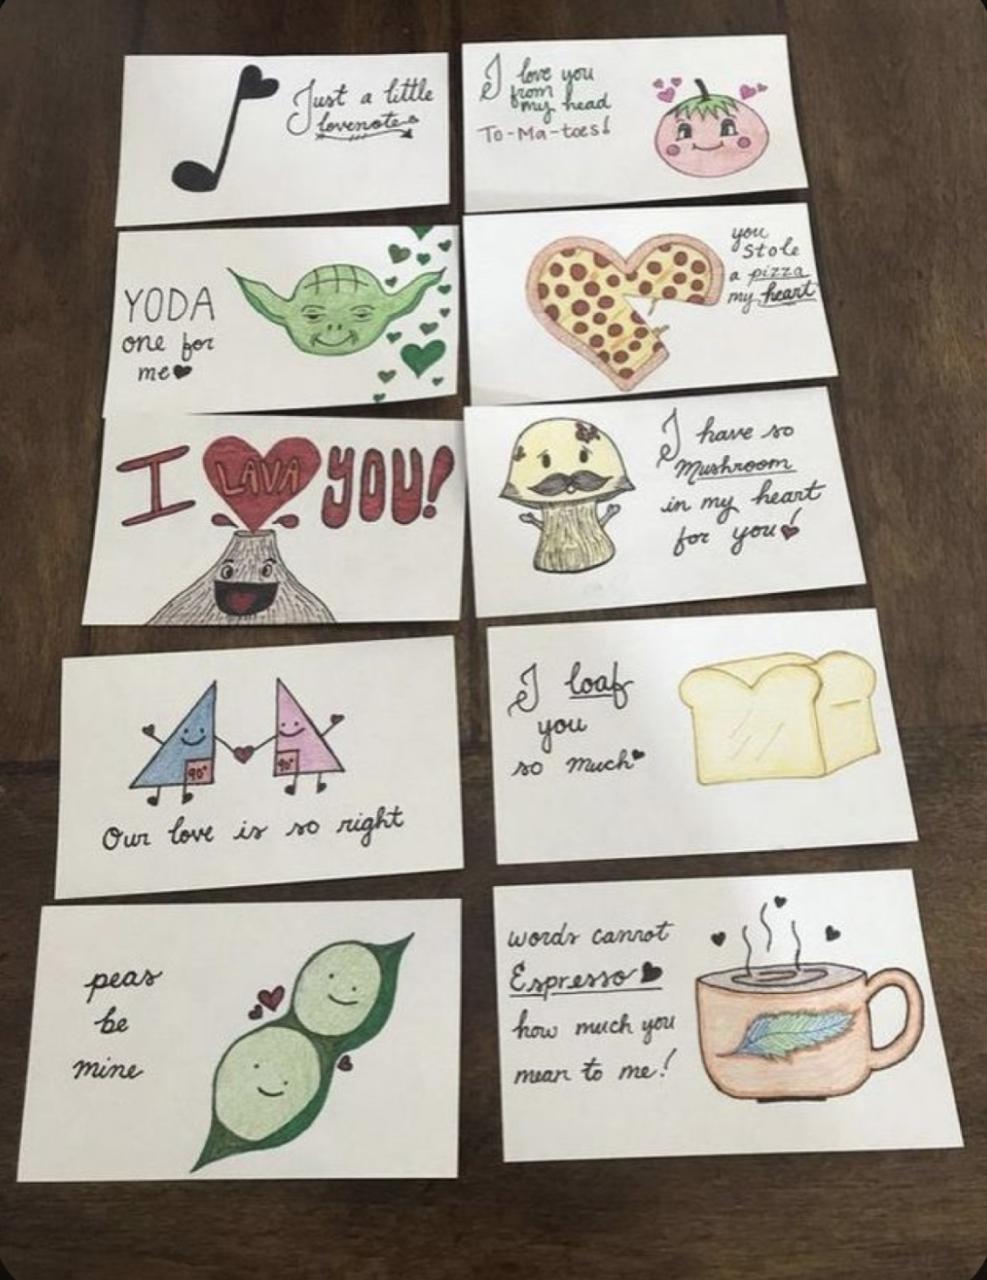 Just a little
lovenote
I love you
from
my head
To-Ma-toes!
YODA
one for
me
you
stole
a pizza
my heart
I LAVA YOU!
I have so
Mushroom
in my heart
for you!
90° 90°
Our love is so right
I loaf
you
so much
peas
be
mine
words cannot
Espresso
how much you
mean to me!